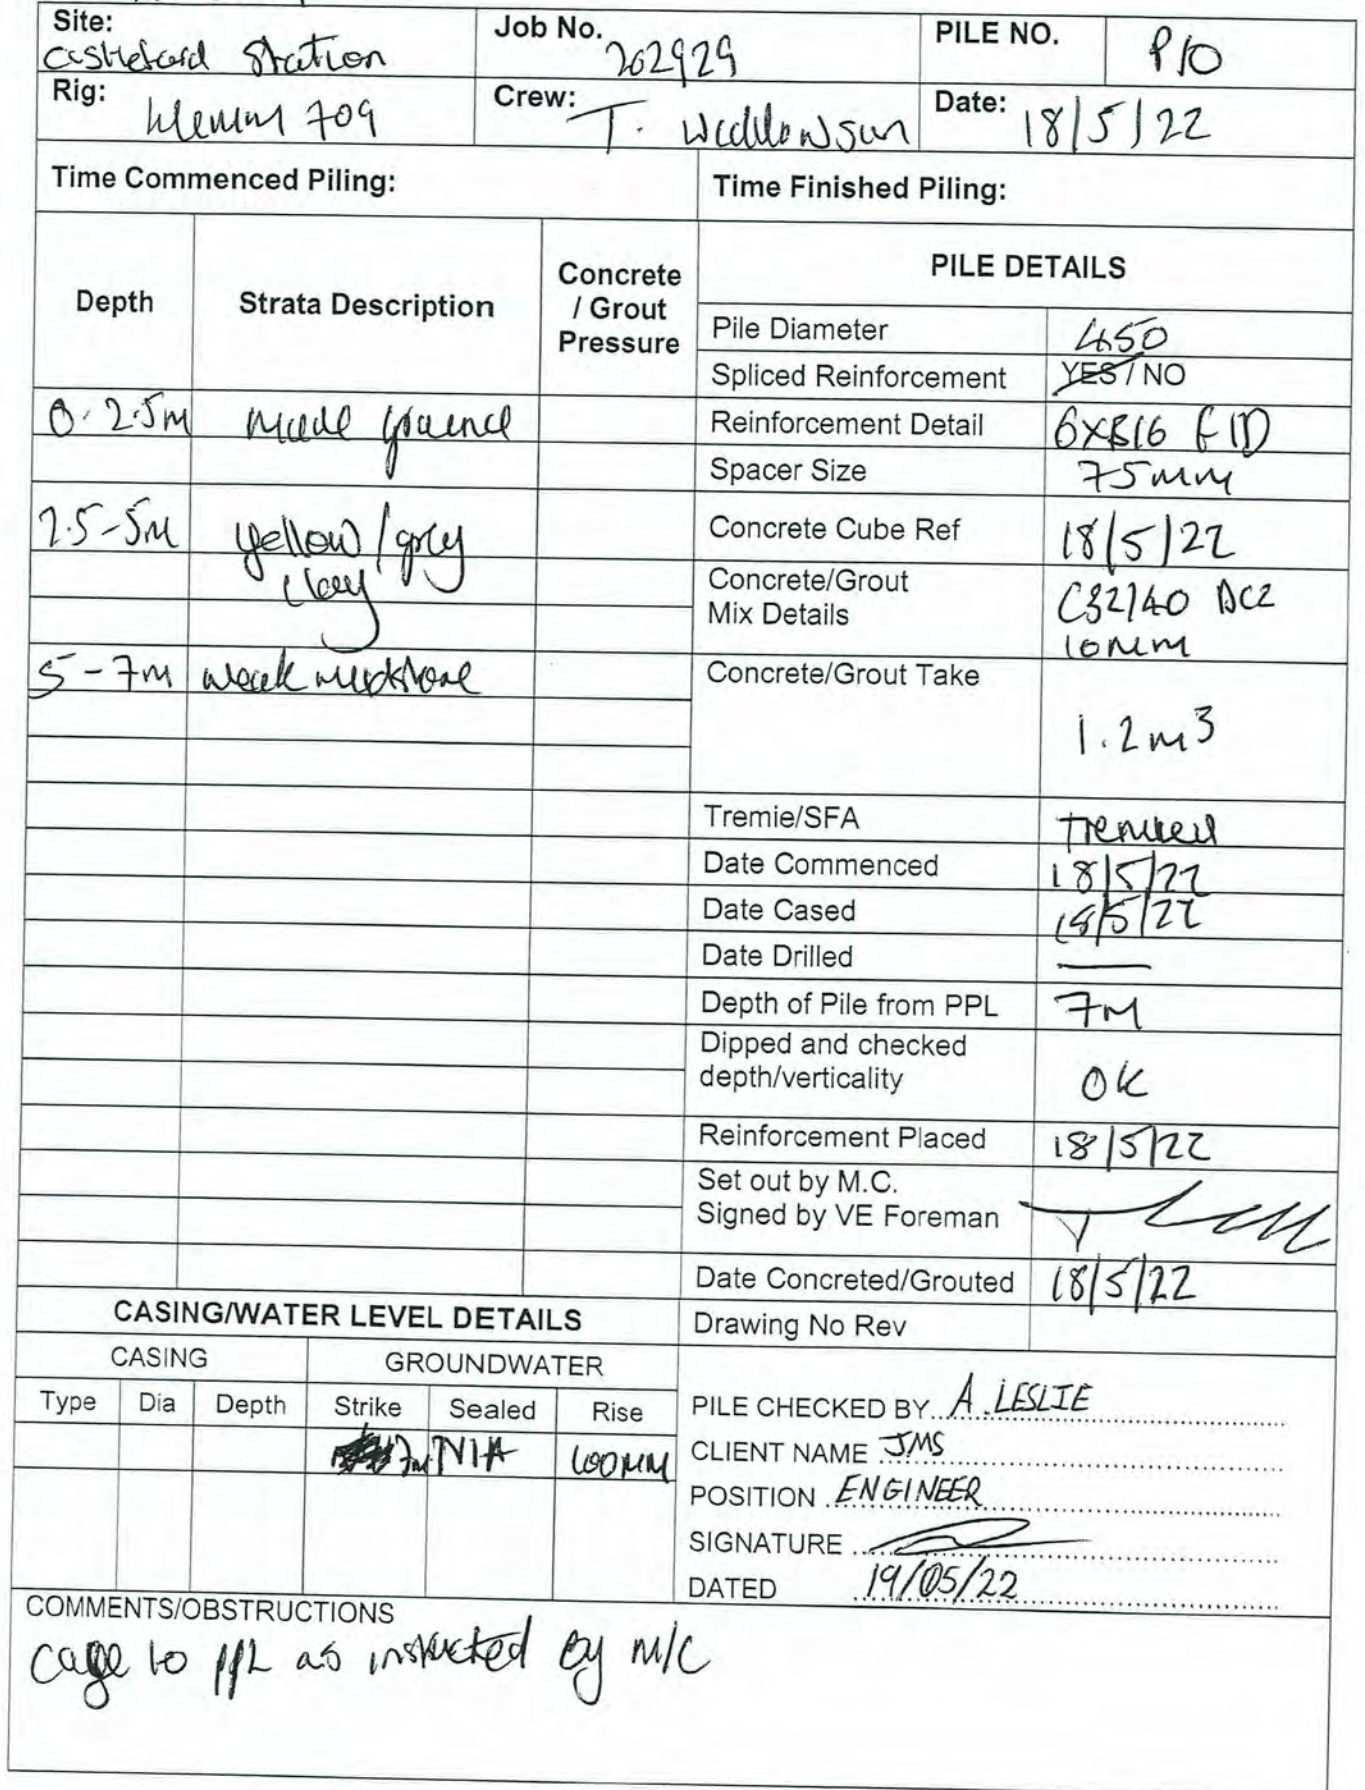 Site:
Castleford Station
Job No.
202929
PILE NO.
P10
Rig:
Klemm 709
Crew:
T.
Date:
18/5/22
Time Commenced Piling:
Time Finished Piling:
Depth
Strata Description
Concrete
/ Grout
Pressure
PILE DETAILS
Pile Diameter
450
Spliced Reinforcement
YES / NO
0-2.5m
made ground
Reinforcement Detail
6XB16 F1D
Spacer Size
75mm
2.5-5m
yellow/grey
clay
Concrete Cube Ref
18/5/22
Concrete/Grout
Mix Details
C32/40 DC2
10mm
5-7m
weak mudstone
Concrete/Grout Take
1.2m3
Tremie/SFA
Tremied
Date Commenced
18/5/22
Date Cased
18/5/22
Date Drilled
—
Depth of Pile from PPL
7m
Dipped and checked
depth/verticality
OK
Reinforcement Placed
18/5/22
Set out by M.C.
Signed by VE Foreman
Date Concreted/Grouted
18/5/22
CASING/WATER LEVEL DETAILS
Drawing No Rev
CASING
GROUNDWATER
Type
Dia
Depth
Strike
Sealed
Rise
7m
N/A
600mm
PILE CHECKED BY A. LESLIE
CLIENT NAME JMS
POSITION ENGINEER
SIGNATURE
DATED 19/05/22
COMMENTS/OBSTRUCTIONS
cage to PPL as instructed by M/C